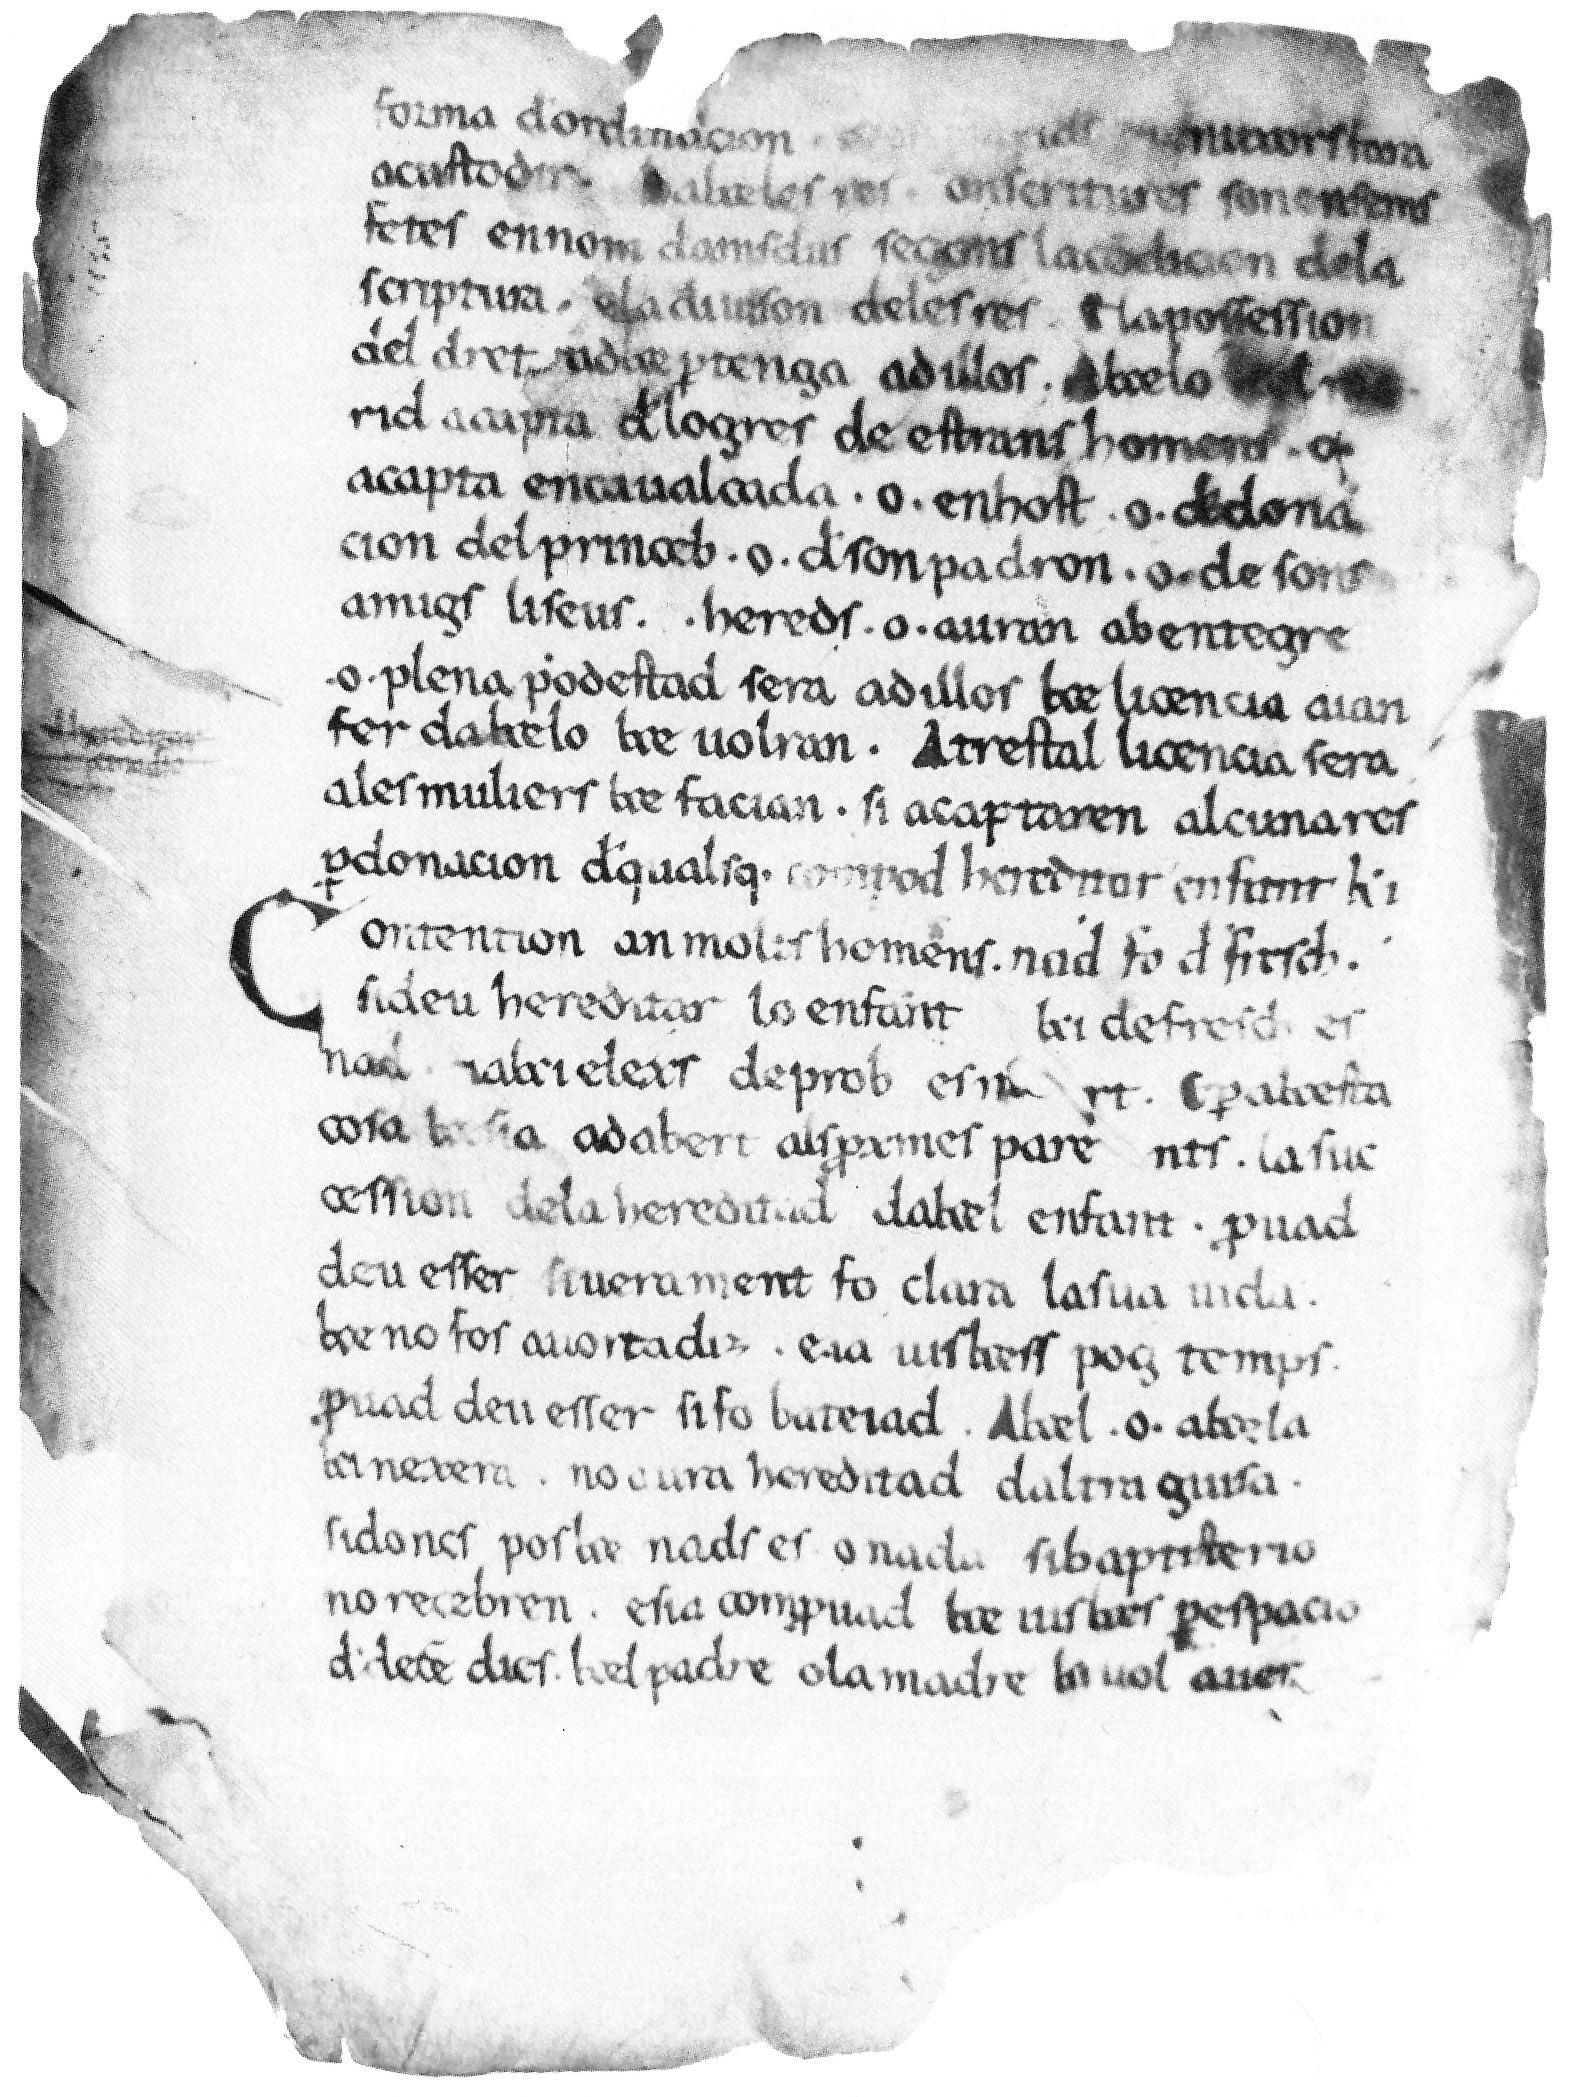 forma d'ordinacion
acustodir. scritures son ensems
fetes en nom d amsdus segons la condicion de la
scriptura. e la diuision de les res. E la possession
del dret pertenga ad illos. Akelo
rid acapta d'logres de estrans homens. o
acapta en caualcada. o. en host. o. de dona
cion del princeb. o. d'son padron. o. de sons
amigs li seus. hereds. o. auran ab entegre
.o. plena podestad sera ad illos ke licencia aian
fer dakelo ke uolran. Atrestal licencia sera
a les muliers ke facian. si acaptaren alcuna res
per donacion d'qualsq. com pod heretar enfant ki
Contention an moltes homens. nad fo d fresch.
si deu hereditar lo enfant ki de fresch es
nad. deprob es mort. E per akesta
cosa ke sia ad abert als proxmes parents. la suc
cession de la hereditad dakel enfant. prouad
deu esser si uerament fo clara la sua uida.
ke no fos auortadiz. e ia uiskess pog temps.
prouad deu esser si fo bateiad. Akel. o. akela
ki nexera. no aura hereditad daltra guisa.
si doncs pos ke nads es o nada si baptisterio
no recebren. e sia com prouad ke uiskes per espacio
d' dies. kel padre o la madre ki uol auer